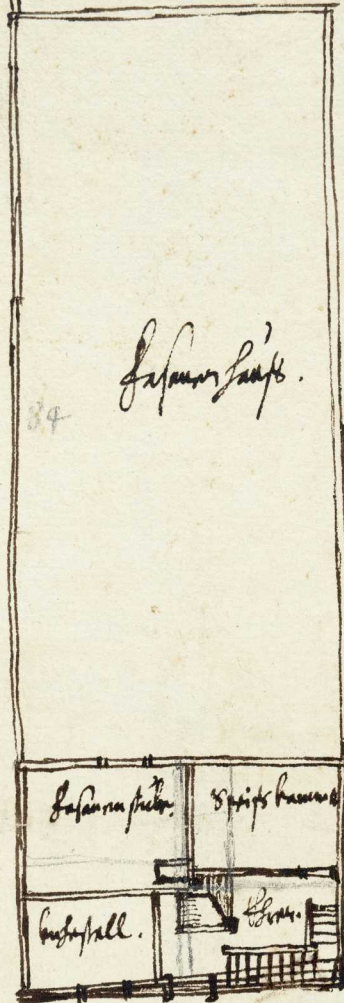 Fasanen hauß.
84
Fasanen stube.
Speiß kammer
kuhestall.
Ehren.